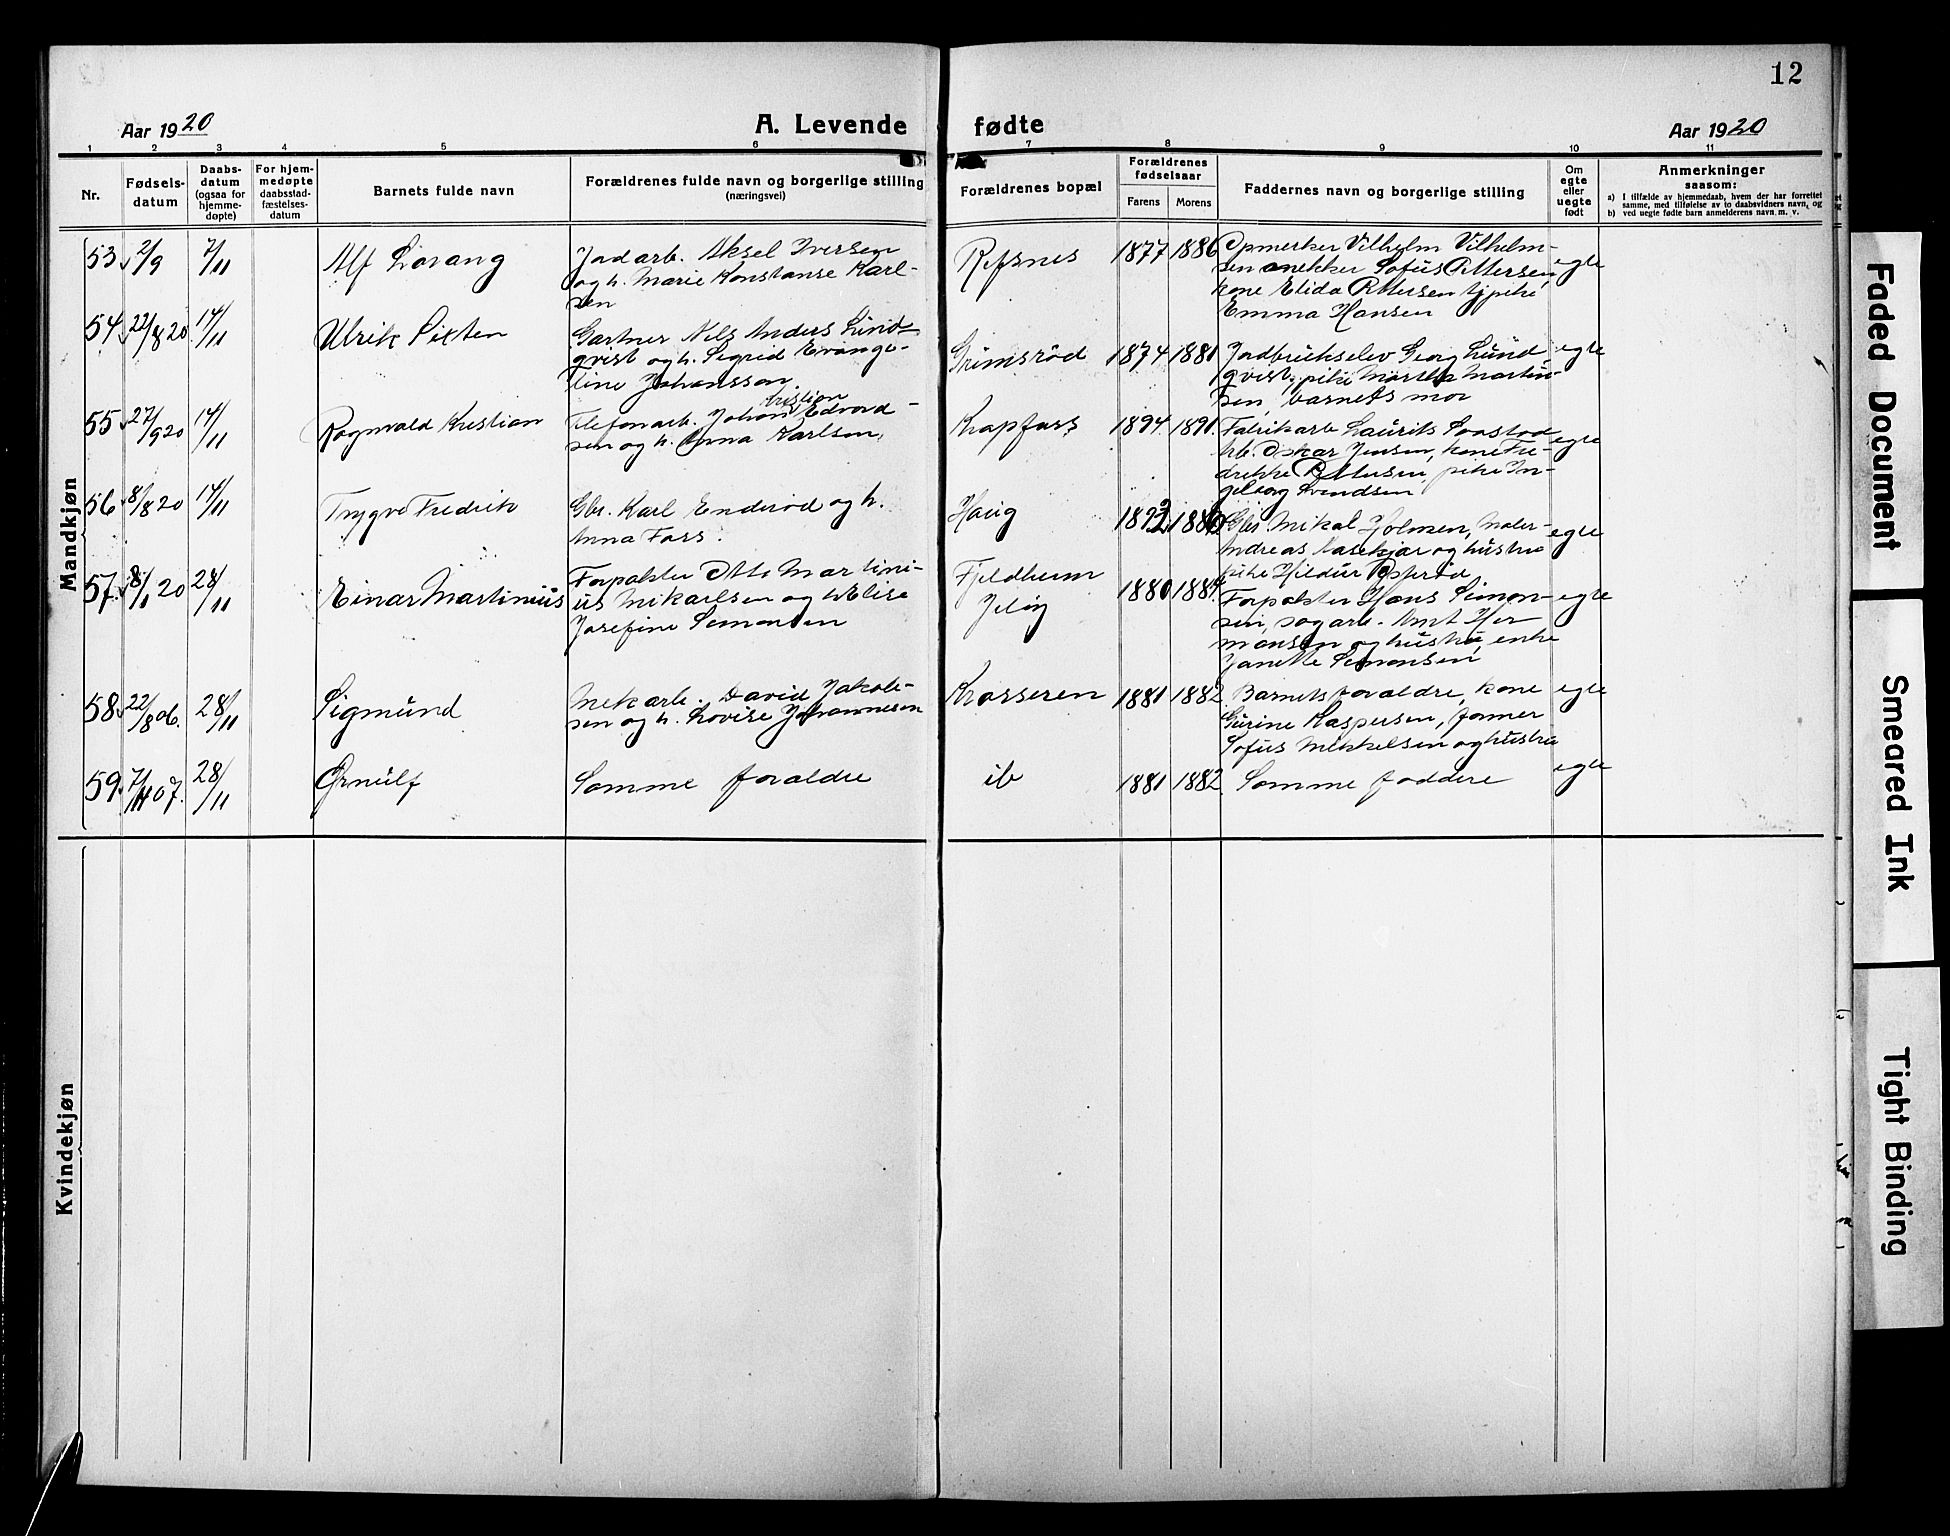 12
Aar 1920
A. Levende
fødte
Aar 1920
1 2 3 4 5 6 7 8 9 10 11
Nr.
Fødsels-
datum
Daabs-
datum
(ogsaa for
hjemme-
døpte)
For hjem-
medøpte
daabsstad-
fæstelses-
datum
Barnets fulde navn
Forældrenes fulde navn og borgerlige stilling
(næringsvei)
Forældrenes bopæl
Forældrenes
fødselsaar
Farens
Morens
Faddernes navn og borgerlige stilling
Om
egte
eller
uegte
født
Anmerkninger
saasom:
a) I tilfælde av hjemmedaab, hvem der har forrettet
samme, med tilføielse av to daabsvidners navn, og
b) ved uegte fødte barn anmelderens navn m. v.
Mandkjøn
53 2/9 7/11 Alf Lorang
Jordarb. Aksel Iversen
og h. Marie Konstanse Karl-
sen
Refsnes 1877 1886
Vilhelm Vilhelm-
sen snekker Sofus Pettersen,
kone Elida Pettersen tjpike
Emma Hansen
egte
54 22/8 20 14/11 Ulrik Sixten
Gartner Nils Anders Lind-
qvist og h. Sigrid Evange-
line Johansson.
Grimsrød 1874 1881
Jordbrukselev Georg Lund
qvist, pike Martha Martin-
sen, barnets mor
egte
55 27/9 20 14/11 Ragnvald Kristian
Kristian
Tlefonarb. Johan Edvard-
sen og h. Anna Karlsen,
Krapfoss 1894. 1891.
Fabrikarb Laurits
arb. Oskar Jensen, kone Fre-
drikke Pettersen, pike In-
geborg Svendsen
egte
56 8/8 20 14/11 Trygve Fredrik
Gbr. Karl Enderød og h.
Anna Foss.
Haug 1892
Gbr. Mikal Holmen, Maler
Andreas og hustru
pike Hildur
egte
57. 8/1 20 28/11 Einar Martinius
Forpakter Otto Martini-
us Mikarlsen og h Elise
Josefine Simonsen
Fjeldheim
Jeløy
1880 1884.
Forpakter Hans Simon-
sen, sagarb. Amt Her
mansen og hustru, enke
Janette Simonsen
egte
58 22/8 06. 28/11 Sigmund
Mekarb. David Jakob-
sen og h. Lovise Johannesen
Krosseren 1881 1882
Barnets foraldre, kone
Gurine Kaspersen, former
Sofus Mikkelsen og hustru
egte
59. 7/11 07. 28/11 Ørnulf
Samme foraldre
ib 1881 1882
Samme faddere
egte
Kvindekjøn
Faded Document
Smeared Ink
Tight Binding